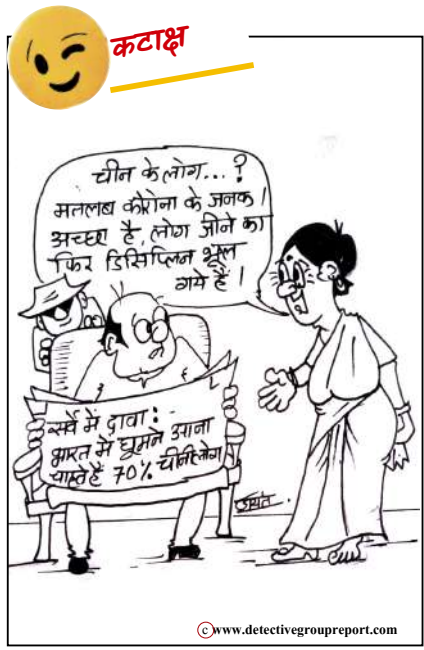 कटाक्ष
चीन के लोग...?
मतलब कोरोना के जनक!
अच्छा है, लोग जीने का
फिर डिसिप्लिन भूल
गये हैं!
सर्वे में दावा:-
भारत में घूमने आना
चाहते हैं 70% चीनी लोग
जयंत.
©www.detectivegroupreport.com